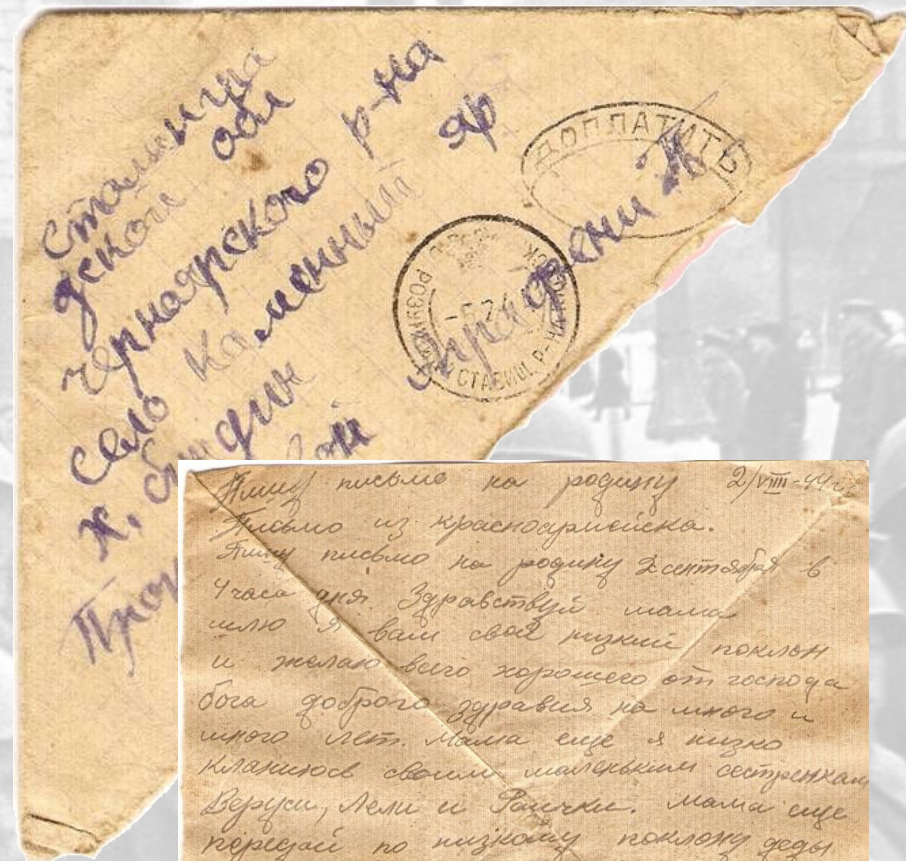 Сталингра
дской обл
черноярского р-на
село Каменный яр
х, 
Аграфени
ДОПЛАТИТЬ
СТАВИЩ. Р-НА
Пишу письмо на родину 2/VIII-44 г.
Письмо из красноармейска.
Пишу письмо на родину 2 сентября в
4 часа дня. Здравствуй мама
шлю я вам свой низкий поклон
и желаю всего хорошего от господа
бога доброго здравия на много и
много лет. Мама еще я низко
кланиюсь своим маленьким сестренкам
Веруси, Лели и Раички. мама еще
передай по низкому поклону деды